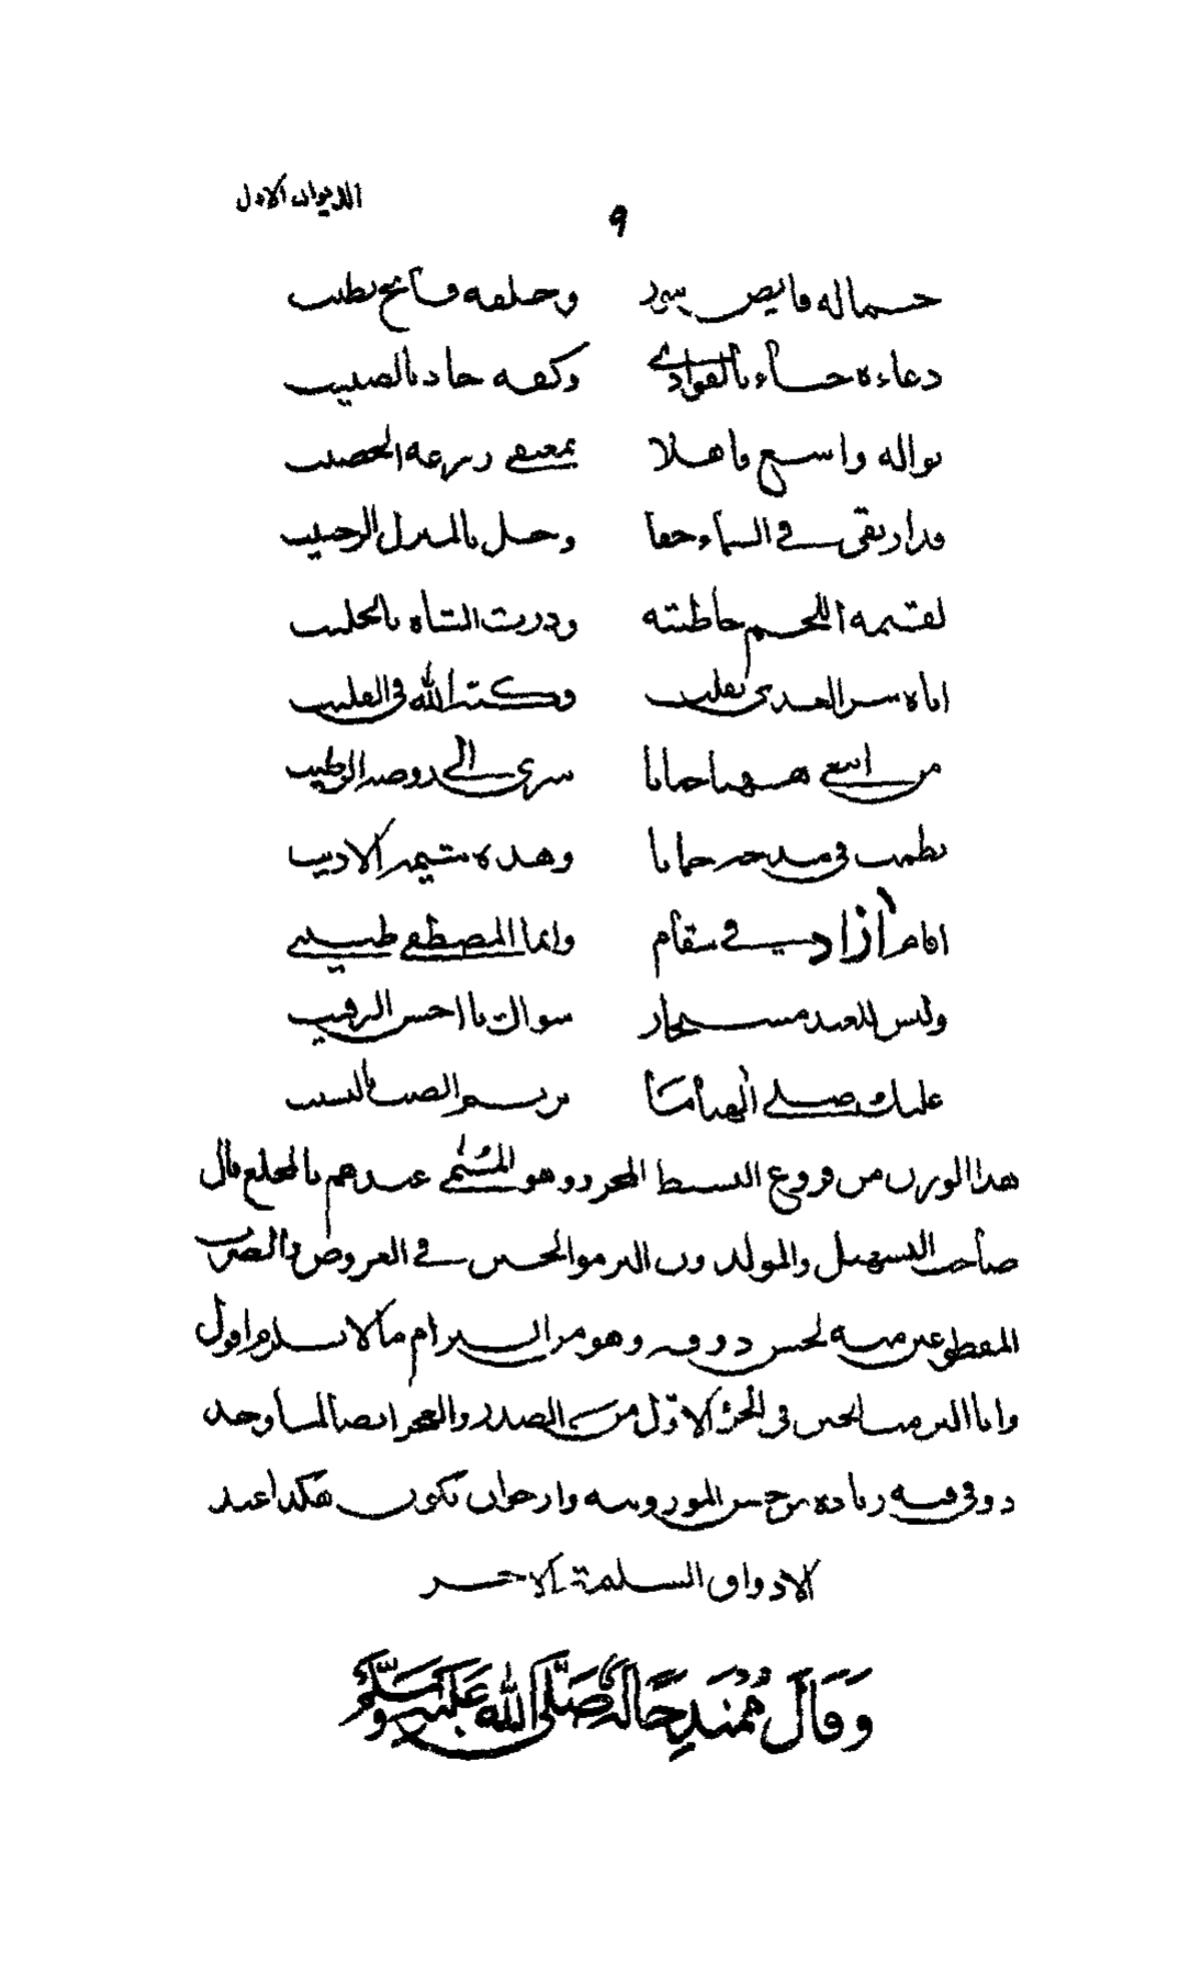 الديوان الاول
٩
جماله فايض بنور وخلقه فائح بطيب
دعاءه جاء بالغوادي وكفه جاد بالصبيب
نواله واسع فاهلا بمعتفى ربعه الخصيب
قدار تقى فى السماء حقا وحل بالمنزل الرحيب
لقتيمه اللحم خاطبته ودرت الشاة بالحليب
اباه سر العدى بقلب وكبته الله فى القليب
من اسعى ههنا حبانا سرى الى روضه الرطيب
نظمت فى مدحه جمانا وهذه شيمة الاديب
انا م آزاد فى سقام وانما المصطفى طبيبى
وليس للعبد مستجار سواك يا احسن الرقيب
عليك صلى الهنا ما ترنم الصب بالنسيب
هذا الوزن من فروع البسيط المجزو وهو المسمى عندهم بالمخلع قال
صاحب التسهيل والمولدون التزموا الخبن فى العروض والضرب
المقطوعين منه لحسن ذوقه وهو من التزام ما لا يلزم اقول
وانا التزمت الخبن فى الجزء الاول من الصدر والعجز ايضا لما وجد
ذوقى فيه زيادة من حسن الموزونية وارجو ان تكون هكذا عند
الاذواق السليمة الاخر
وَقَالَ مُمْتَدِحًا لَهُ صَلَّى اللهُ عَلَيْهِ وَسَلَّمَ